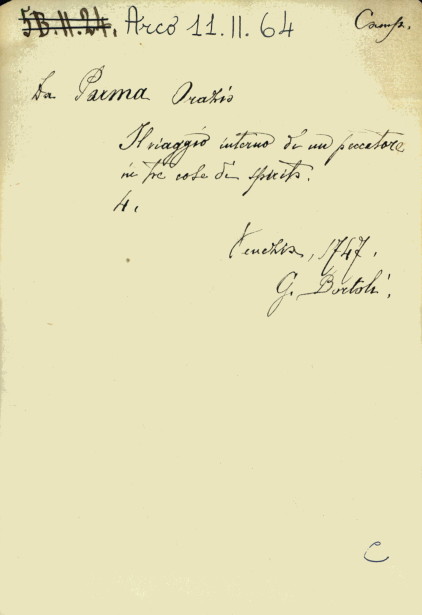 5B.II.24. Arco 11.II.64
Da Parma Orazio
Il viaggio interno di un peccatore
in tre cose di spirito.
4.
Venezia, 1747.
G. Bortoli.
C